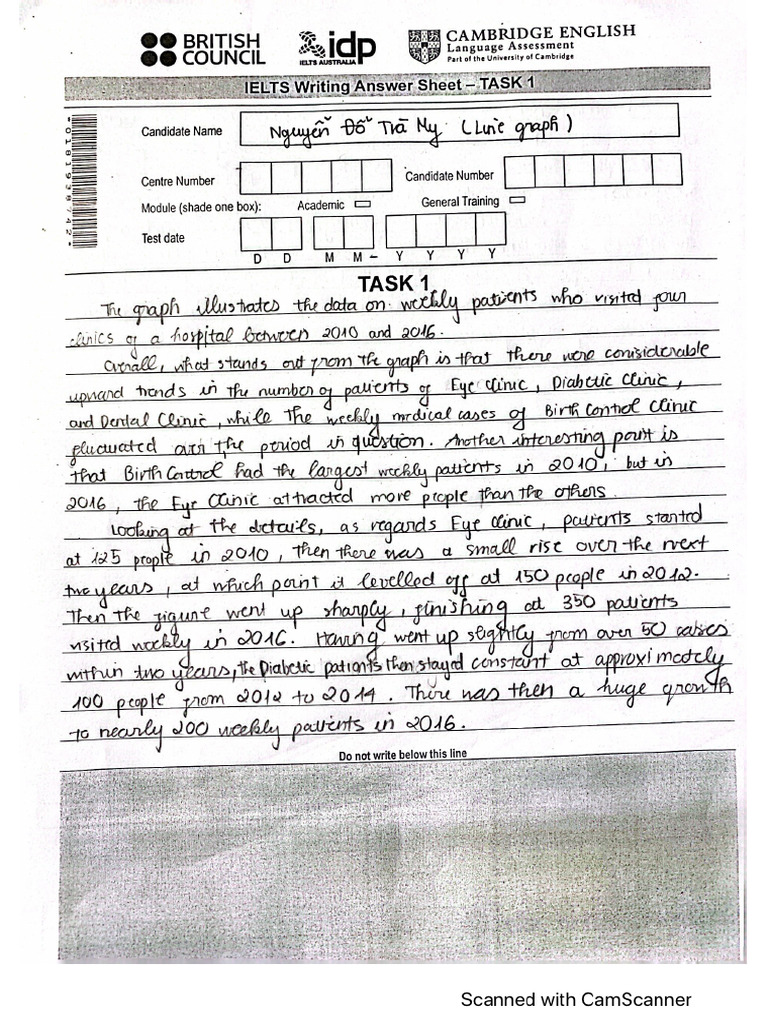 BRITISH COUNCIL
idp
IELTS AUSTRALIA
CAMBRIDGE ENGLISH
Language Assessment
Part of the University of Cambridge
IELTS Writing Answer Sheet – TASK 1
Candidate Name
Nguyễn Đỗ Trà My (Line graph)
Centre Number
Candidate Number
Module (shade one box):
Academic
General Training
Test date
D D M M – Y Y Y Y
TASK 1
The graph illustrates the data on weekly patients who visited four
clinics of a hospital between 2010 and 2016.
Overall, what stands out from the graph is that there were conisiderable
upward trends in the number of patients of Eye clinic, Diabetic Clinic,
and Dental Clinic, while the weekly medical cases of Birth Control Clinic
flucuated over the period in question. Another interesting point is
that Birth Control had the largest weekly patients in 2010, but in
2016, the Eye Clinic attracted more people than the others.
Looking at the details, as regards Eye clinic, patients started
at 125 people in 2010, then there was a small rise over the next
two years, at which point it levelled off at 150 people in 2012.
Then the figure went up sharply, finishing at 350 patients
visited weekly in 2016. Having went up slightly from over 50 cases
within two years, the Diabetic patients then stayed constant at approximately
100 people from 2012 to 2014. There was then a huge growth
to nearly 200 weekly patients in 2016.
Do not write below this line
Scanned with CamScanner